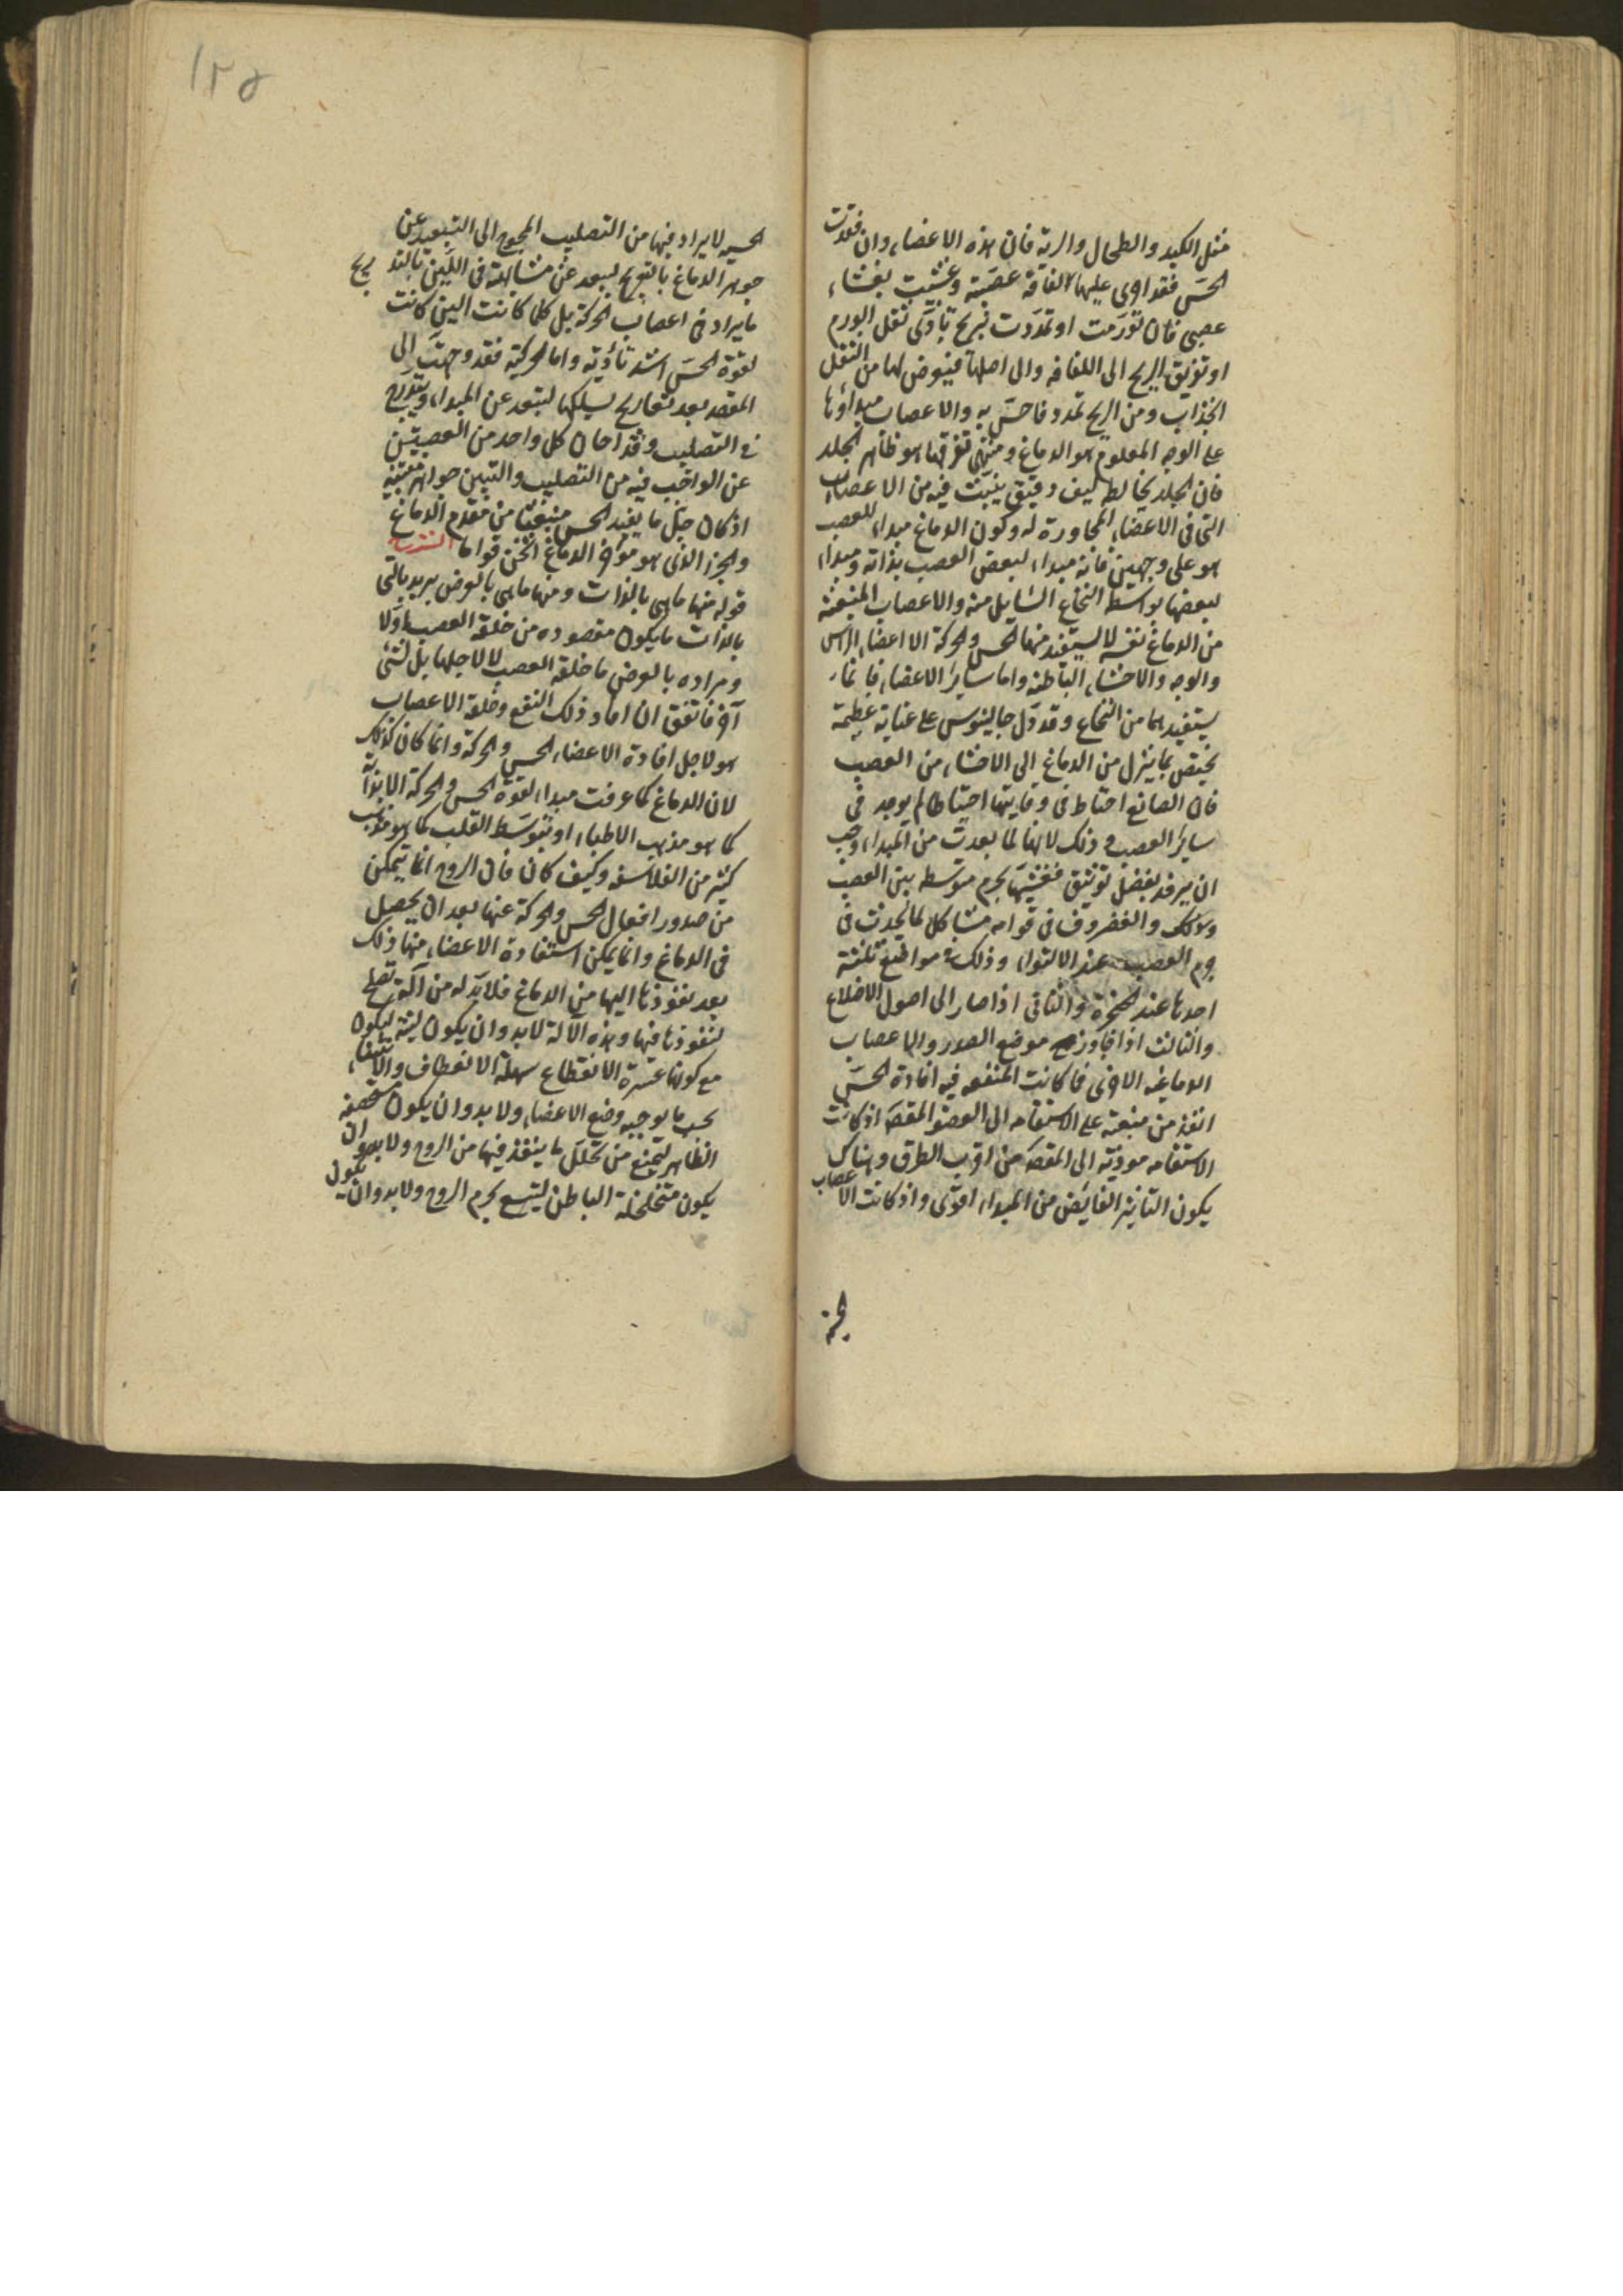 مثل الكبد والطحال والرية فان هذه الاعضاء وان فقدت
الحس فقد اجرى عليها لفافة عصبية وغشيت بغشاء
عصبى فان تورمت او تمددت بريح تادى ثقل الورم
او تفريق الريح الى اللفافه والى اصلها فيعرض لها من الثقل
انجذاب ومن الريح تمدد فاحس به والاعصاب مبدأها
على الوجه المعلوم هو الدماغ ومنتهى تفرقها هو ظاهر الجلد
فان الجلد يخالطه ليف رقيق ينبت فيه من الاعصاب
التى فى الاعضاء المجاورة له وكون الدماغ مبداء للعصب
هو على وجهين فانه مبداء لبعض العصب بذاته ومبداء
لبعضها بواسطه النخاع السايل منه والاعصاب المنبعثه
من الدماغ نفسه لا يستفيد منها الحس والحركة الا اعضاء الراس
والوجه والاحشاء الباطنه واما ساير الاعضاء فانما
يستفيدهما من النخاع وقد دل جالينوس على عناية عظيمة
يختص بما ينزل من الدماغ الى الاحشاء من العصب
فان الصانع احتاط فى وقايتها احتياطا لم يوجد فى
ساير العصب وذلك لانها لما بعدت من المبداء وجب
ان يرفد بفضل توثيق فغشيها بجرم متوسط بين العصب
والغضروف فى قوامه مشاكل لما يحدث فى
جرم العصب عند الالتواء وذلك فى مواضع ثلثة
احدها عند الحنجرة والثانى اذا صار الى اصول الاضلاع
والثالث اذا جاوز موضع الصدر والاعصاب
الدماغيه الاخرى فما كانت المنفعه فيه افادة الحس
انفذ من منبعثه على الاستقامه الى العضو المقصد اذ كانت
الاستقامه مودية الى المقصد من اقرب الطرق وهناك
يكون التاثير الفايض من المبداء اقوى واذ كانت الاعصاب
الحسية
١٢٥
الحسيه لا يراد فيها من التصليب المحوج الى التبعيد عن
جوهر الدماغ بالتعريج ليبعد عن مشابهته فى اللين بالتدريج
ما يراد فى اعصاب الحركة بل كلما كانت الين كانت
لقوة الحس اشد تأدية واما الحركية فقد وجهت الى
المقصد بعد تعاريج يسلكها لتبعد عن المبداء ويتدرج
فى التصليب وقد اعان كل واحد من العصبتين
عن الواجب فيه من التصليب والتليين جوهر منبته
اذ كان جل ما يفيد الحس منبعثا من مقدم الدماغ
والجزء الذى هو مؤخر الدماغ اثخن قواما الشرح
قوله منها ما هى بالذات ومنها ما هى بالعرض يريد بالتى
بالذات ما يكون مقصوده من خلقة العصب اولا
ومراده بالعرض ما خلقه العصب لا لاجلها بل لشئ
آخر فاتفق ان افاد ذلك النفع وخلقة الاعصاب
هو لاجل افادة الاعضاء الحس والحركة وانما كان كذلك
لان الدماغ كما عرفت مبداء لقوة الحس والحركة اما بذاته
كما هو مذهب الاطباء او بتوسط القلب كما هو مذهب
كثير من الفلاسفه وكيف كان فان الروح انما يتمكن
من صدور افعال الحس والحركة عنها بعد ان يحصل
فى الدماغ وانما يمكن استفادة الاعضاء منها ذلك
بعد نفوذها اليها من الدماغ فلا بد له من آلة تصلح
لنفوذها فيها وهذه الآلة لا بد وان يكون لينة ليكون
مع كونها عسرة الانقطاع سهلة الانعطاف والانثناء
بحسب ما يوجبه وضع الاعضاء ولا بد وان يكون مستحصفه
الظاهر لتمنع من تحلل ما ينفذ فيها من الروح ولا بد وان
يكون متخلخلة الباطن ليتسع بجرم الروح ولا بد وان يكون